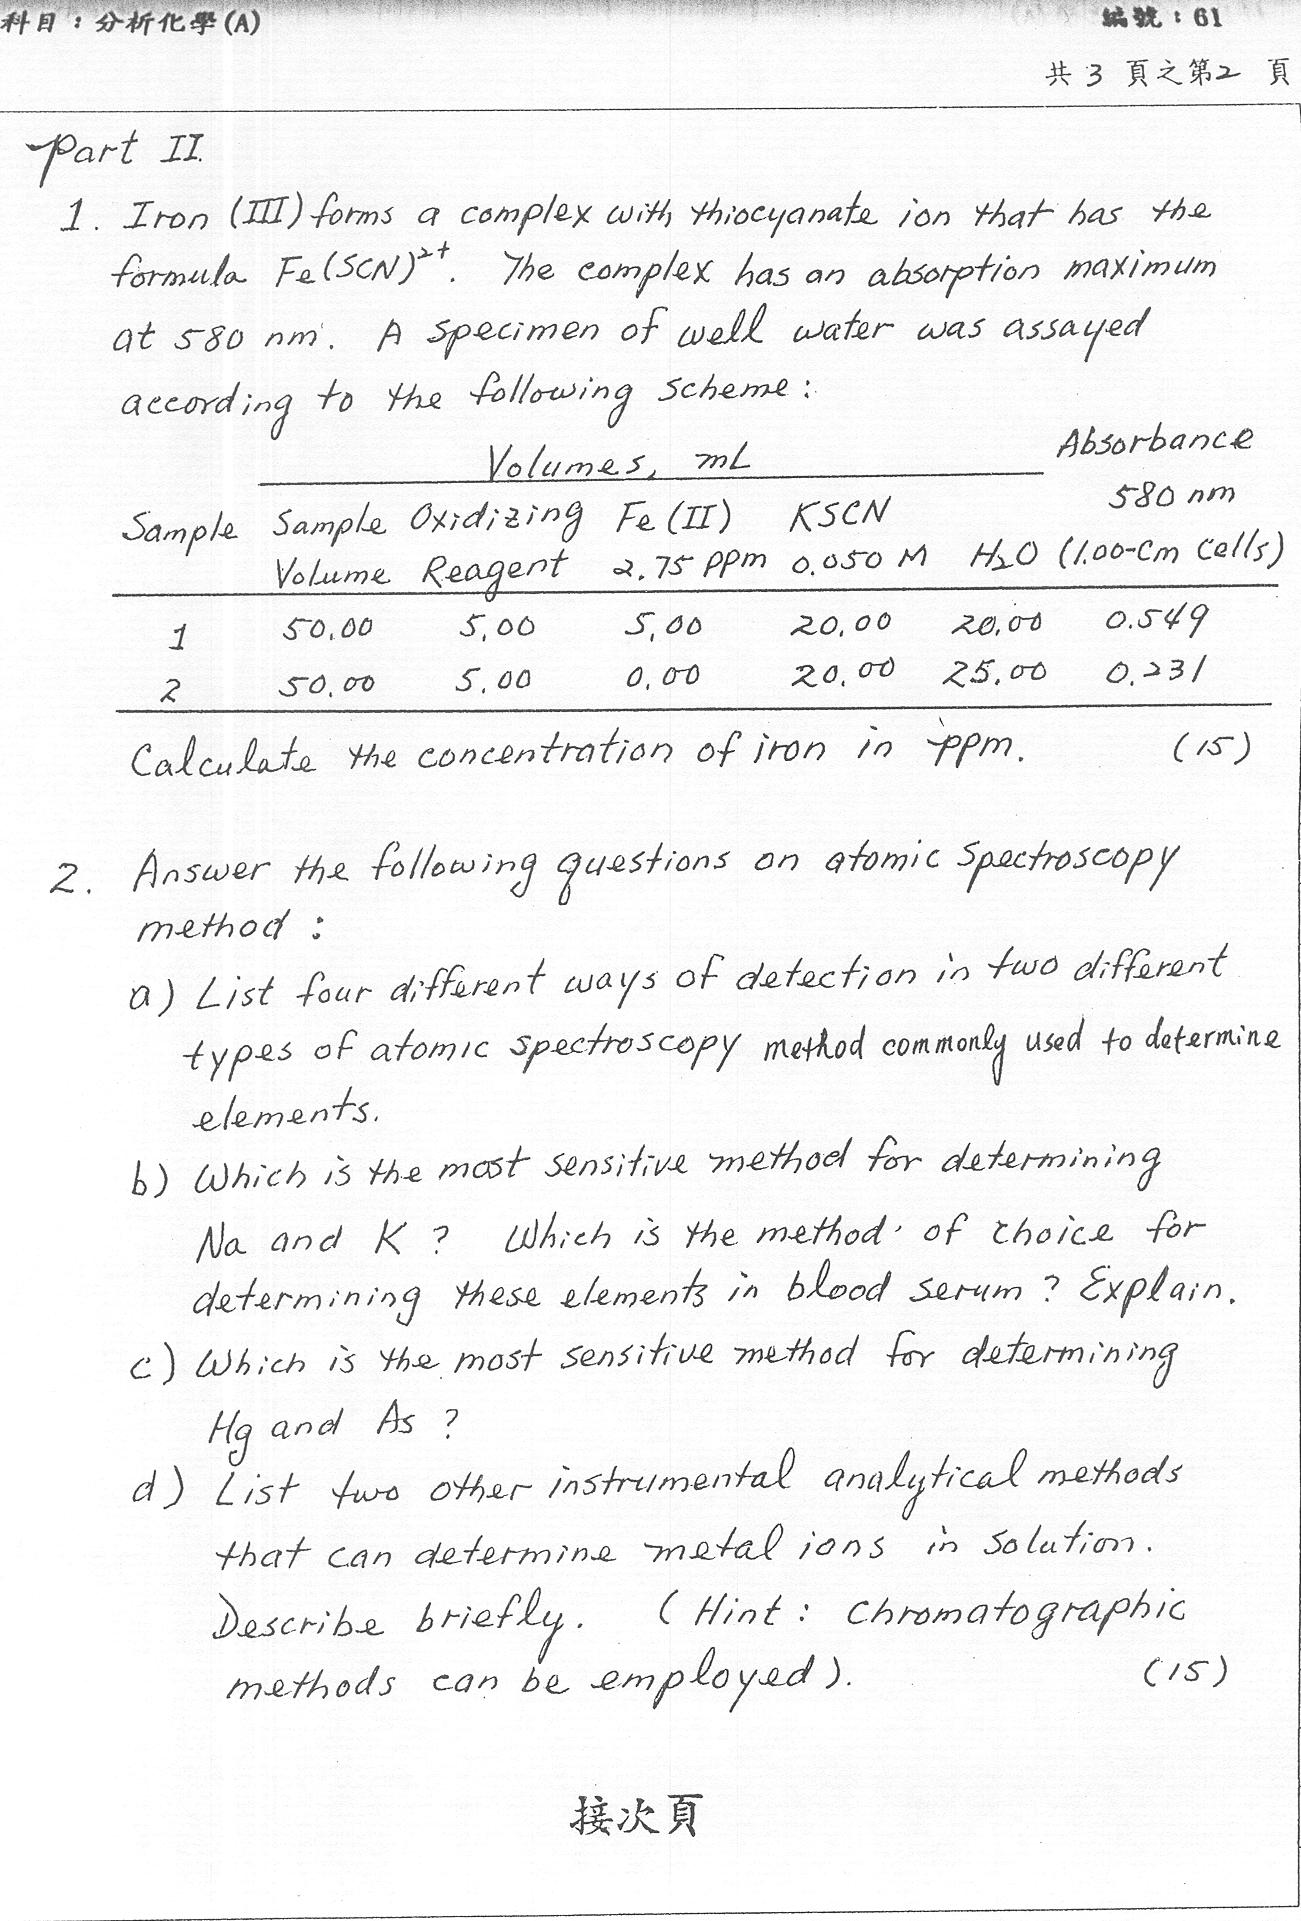 科目：分析化學(A)
編號：61
共 3 頁之第2 頁
Part II.
1. Iron (III) forms a complex with thiocyanate ion that has the
formula Fe(SCN)²⁺. The complex has an absorption maximum
at 580 nm. A specimen of well water was assayed
according to the following scheme:
Volumes, mL Absorbance
Sample Sample Oxidizing Fe(II) KSCN 580 nm
Volume Reagent 2.75 ppm 0.050 M H₂O (1.00-cm cells)
1 50.00 5.00 5.00 20.00 20.00 0.549
2 50.00 5.00 0.00 20.00 25.00 0.231
Calculate the concentration of iron in ppm. (15)
2. Answer the following questions on atomic spectroscopy
method:
a) List four different ways of detection in two different
types of atomic spectroscopy method commonly used to determine
elements.
b) Which is the most sensitive method for determining
Na and K? Which is the method of choice for
determining these elements in blood serum? Explain.
c) Which is the most sensitive method for determining
Hg and As?
d) List two other instrumental analytical methods
that can determine metal ions in solution.
Describe briefly. (Hint: Chromatographic
methods can be employed). (15)
接次頁